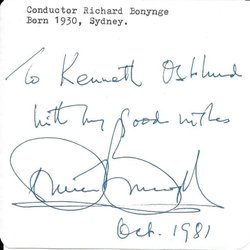 Conductor Richard Bonynge
Born 1930, Sydney.
To Kenneth
with my good wishes
Richard Bonynge
Oct. 1981